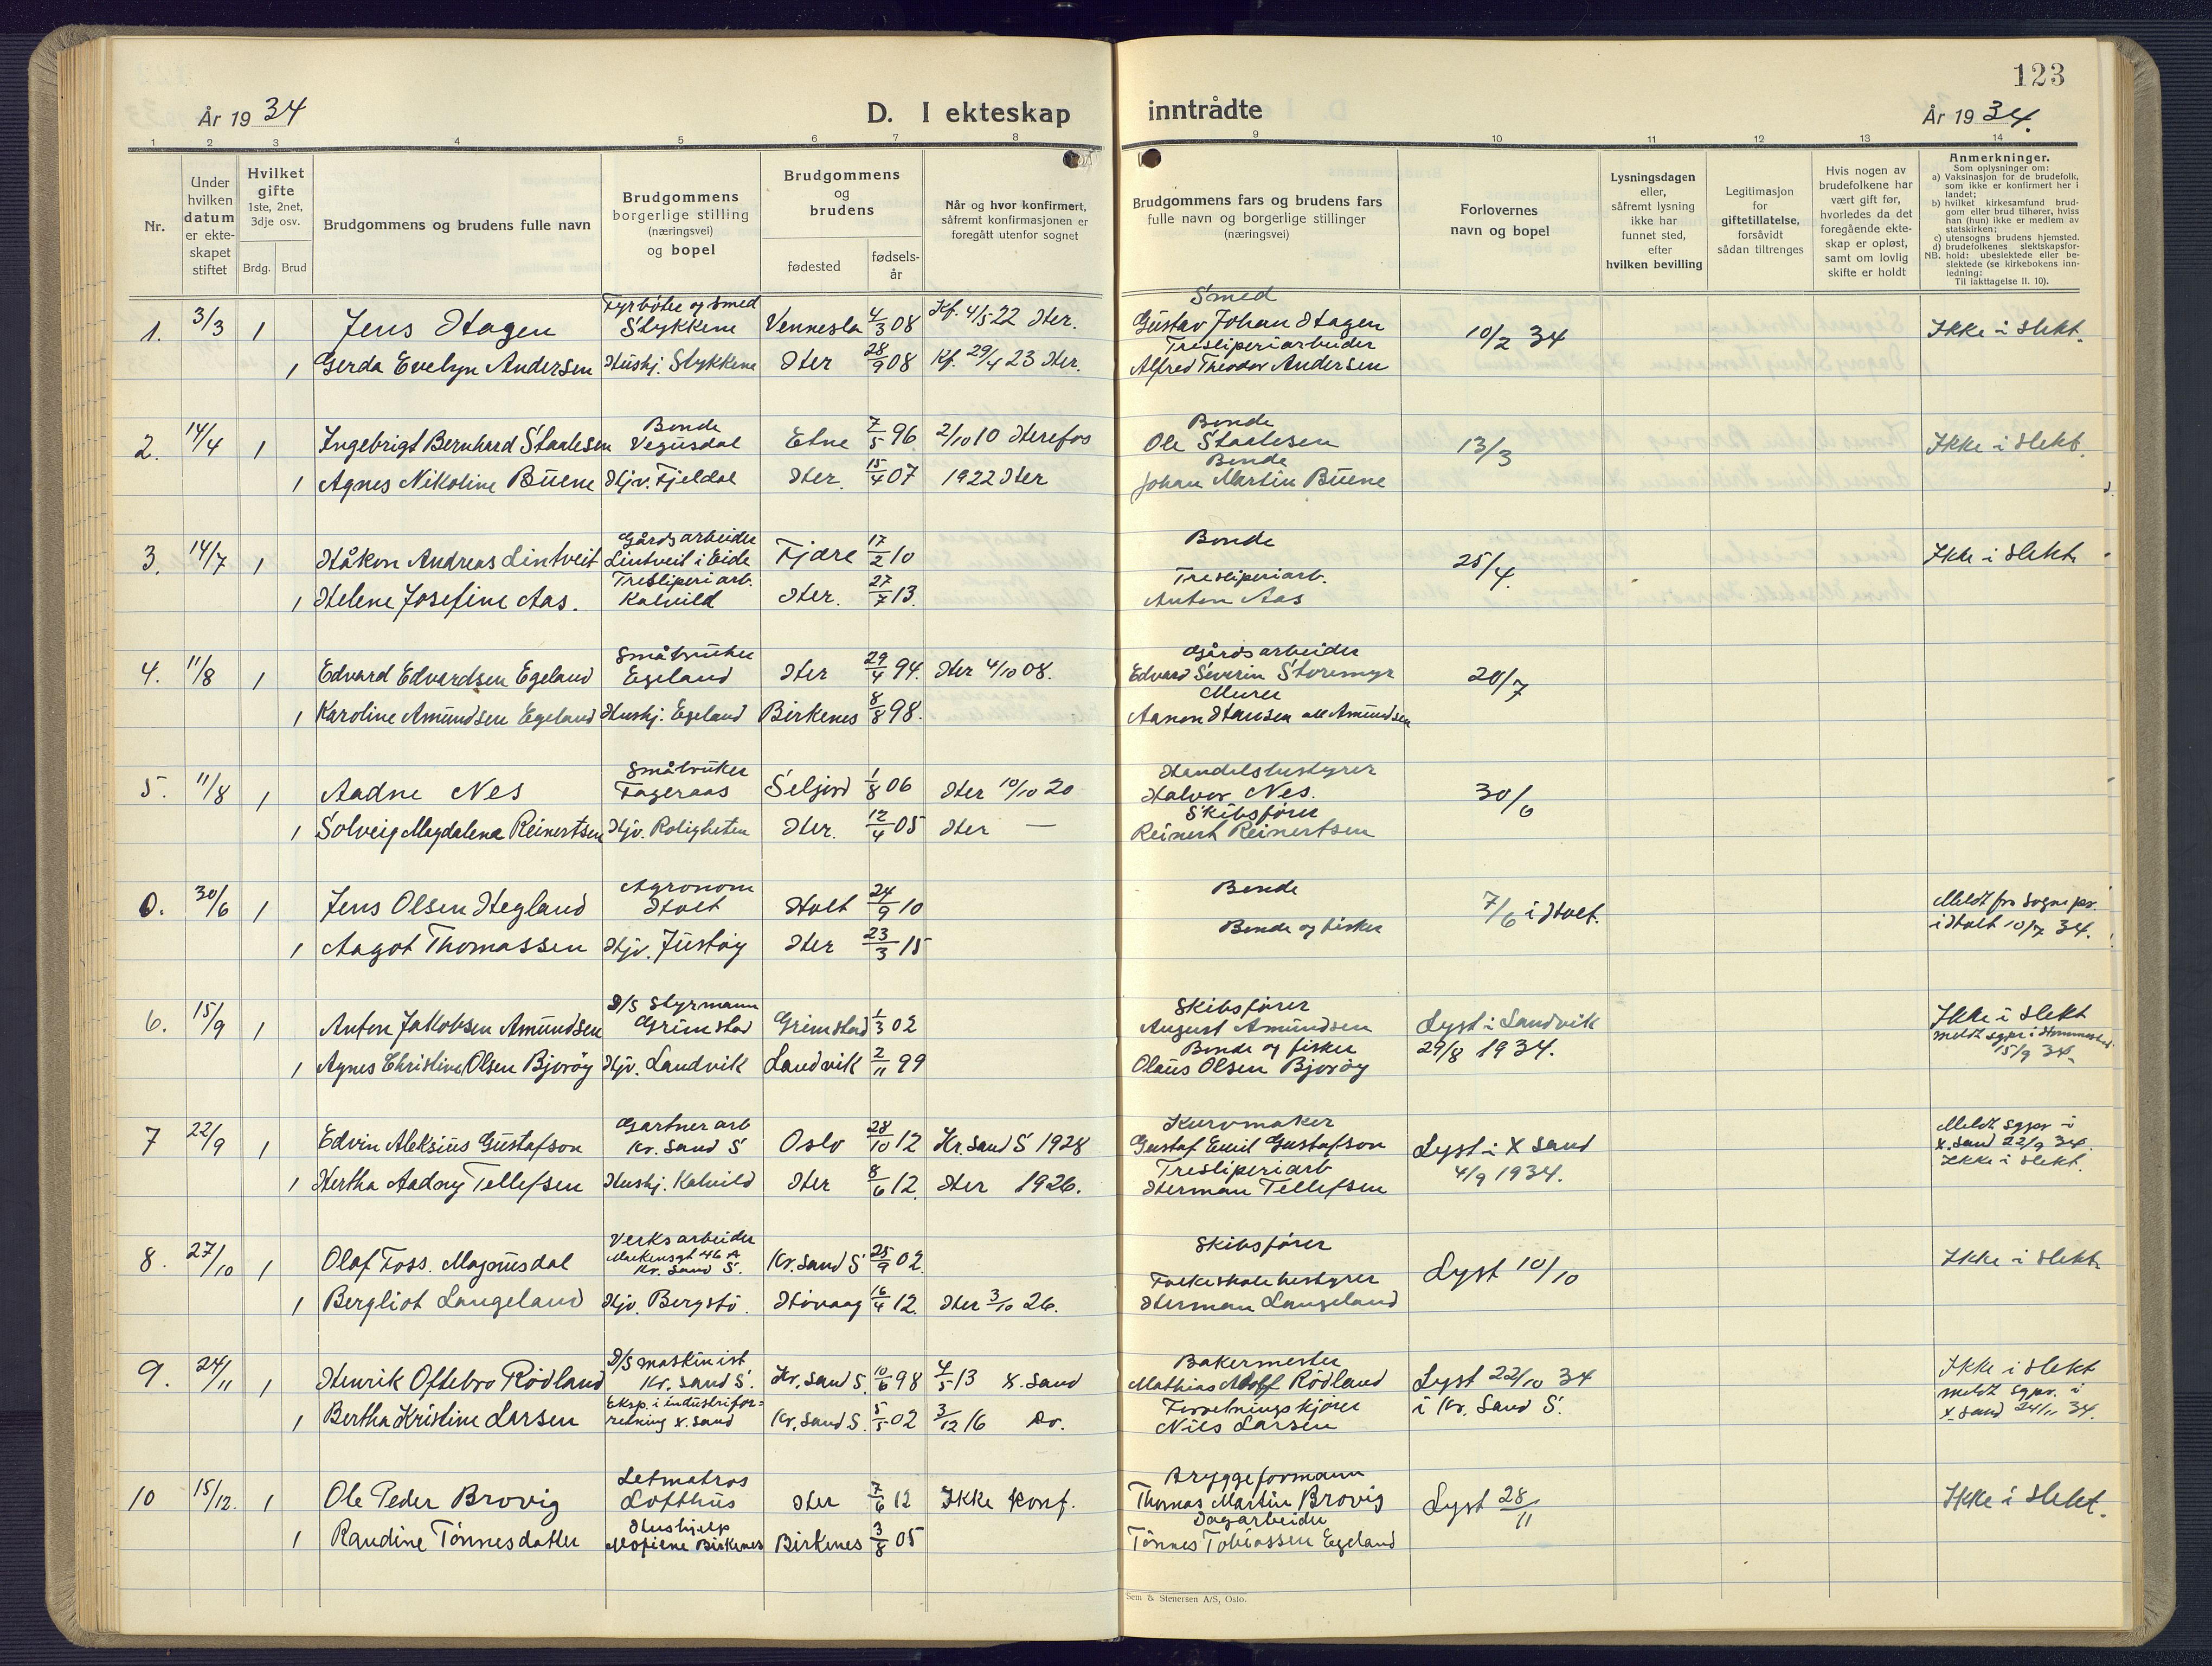 123
År 1934
D. I ekteskap inntrådte
År 1934.
1 2 3 4 5 6 7 8 9 10 11 12 13 14
Nr.
Under hvilken datum er ekteskapet stiftet
Hvilket gifte 1ste, 2net, 3dje osv.
Brdg. Brud
Brudgommens og brudens fulle navn
Brudgommens borgerlige stilling (næringsvei) og bopel
Brudgommens og brudens
fødested
fødselsår
Når og hvor konfirmert, såfremt konfirmasjonen er foregått utenfor sognet
Brudgommens fars og brudens fars fulle navn og borgerlige stillinger (næringsvei)
Forlovernes navn og bopel
Lysningsdagen eller, såfremt lysning ikke har funnet sted, efter hvilken bevilling
Legitimasjon for giftetillatelse, forsåvidt sådan tiltrenges
Hvis nogen av brudefolkene har vært gift før, hvorledes da det foregående ekteskap er opløst, samt om lovlig skifte er holdt
Anmerkninger.
Som oplysninger om:
a) Vaksinasjon for de brudefolk, som ikke er konfirmert her i landet;
b) hvilket kirkesamfund brudgom eller brud tilhører, hviss han (hun) ikke er medlem av statskirken;
c) utensogns brudens hjemsted.
d) brudefolkenes slektskapsforhold: ubeslektede eller beslektede (se kirkebokens innledning:
NB. Til iakttagelse II. 10).
1. 3/3 1 Jens Hagen Fyrbøter og smed Stykkene Vennesla 4/3 08 Kf. 4/5 22 Her. Smed Gustav Johan Hagen 10/2 34 Ikke i slekt.
1 Gerda Evelyn Andersen Hushj. Stykkene Her 28/9 08 Kf. 29/4 23 Her. Tresliperiarbeider Alfred Theodor Andersen
2. 14/4 1 Ingebrigt Bernhard Staalesen Bonde Vegusdal Etne 7/5 96 2/10 10 Herefos Bonde Ole Staalesen 13/3 Ikke i slekt.
1 Agnes Nikoline Buene Hjv. Fjeldal Her. 15/4 07 1922 Her Bonde Johan Martin Buene
3. 14/7 1 Håkon Andreas Lintveit Gårdsarbeider Lintveit i Eide Fjære 17/2 10 Bonde 25/4. Ikke i slekt.
1 Helene Josefine Aas. Tresliperiarb. Kalvild Her. 27/7 13. Tresliperiarb. Anton Aas
4. 11/8 1 Edvard Edvardsen Egeland Småbruker Egeland Her 29/4 94. Her 4/10 08. Gårdsarbeider Edvard Severin Storemyr 20/7
1 Karoline Amundsen Egeland Hushj. Egeland Birkenes 8/8 98. Murer Aanon Hansen all Amundsen
5. 11/8 1 Aadne Nes Småbruker Fageraas Seljord 1/8 06 Her 10/10 20 Handelsbestyrer Halvor Nes. 30/6
1 Solveig Magdalena Reinertsen Hjv. Roligheten Her. 12/4 05 Her — Skibsfører Reinert Reinertsen
0. 30/6 1 Jens Olsen Hegland Agronom Holt Holt 24/9 10 Bonde 7/6 i Holt. Meldt fra sognepr. i Holt 10/7 34.
1 Aagot Thomassen Hjv. Justøy Her 23/3 15 Bonde og fisker
6. 15/9 1 Anton Jakobsen Amundsen D/S Styrmann Grimstad Grimstad 1/3 02 Skibsfører August Amundsen Lyst i Landvik 29/8 1934. Ikke i slekt meldt sgpr. i Hommedal 15/9 34.
1 Agnes Christine Olsen Bjorøy Hjv. Landvik Landvik 2/11 99 Bonde og fisker Olaus Olsen Bjorøy
7 22/9 1 Edvin Aleksius Gustafson Gartnerarb Kr. Sand S Oslo 28/10 12 Kr. Sand S 1928 Kurvmaker Gustaf Emil Gustafson Lyst i X sand 4/9 1934. Meldt sgpr i X. sand 22/9 34. Ikke i slekt.
1 Hertha Aadny Tellefsen Hushj. Kalvild Her 8/6 12. Her 1926. Tresliperiarb Herman Tellefsen
8. 27/10 1 Olaf Foss. Magnusdal Verksarbeider Markensgt 46 A Kr. Sand S. Kr. Sand S 25/9 02. Skibsfører Lyst 10/10 Ikke i slekt.
1 Bergliot Langeland Hjv. Bergstø. Høvaag 16/4 12. Her 3/10 26. Folkeskolebestyrer Herman Langeland
9. 24/11 1 Henrik Oftebro Rødland D/S maskinist Kr. Sand S. Kr. Sand S. 10/6 98 4/5 13 X. Sand Bakermester Mathias Adolf Rødland Lyst 22/10 34 i Kr. Sand S. Ikke i slekt meldt sgpr. i X. sand 24/11 34.
1 Bertha Kristine Larsen Eksp. i industriforretning X. sand Kr. Sand S. 5/5 02 3/12 16 Do. Forretningskjører Nils Larsen
10 15/12. 1 Ole Peder Brovig Letmatros Lofthus Her 7/6 12 Ikke konf. Bryggeformann Thomas Martin Brovig Lyst 28/11 Ikke i slekt.
1 Randine Tønnesdatter Hushjelp Birkenes Birkenes 3/8 05 Dagarbeider Tønnes Tobiassen Egeland
Sem & Stenersen A/S, Oslo.